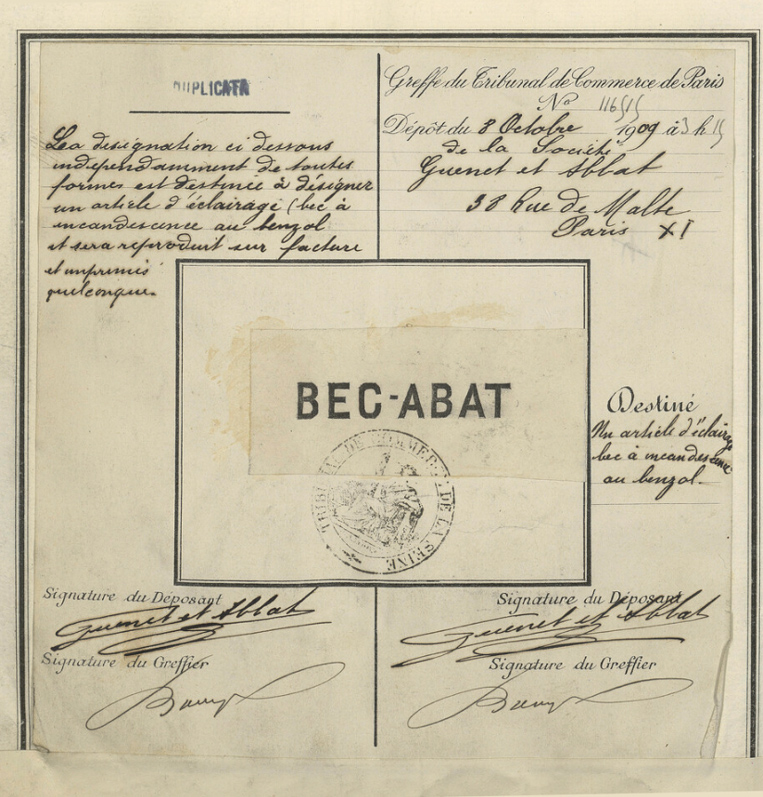 DUPLICATA
La désignation ci dessous
indépendamment de toutes
formes est destinée à désigner
un article d'éclairage (bec à
incandescence au benzol
et sera reproduit sur facture
et imprimés
quelconque.
Greffe du Tribunal de Commerce de Paris
No
Dépôt du 8 Octobre 1909 à 3 h. 15
de la Société
Guenet et Abbat
38 Rue de Malte
Paris XI
BEC-ABAT
TRIBUNAL DE COMMERCE DE LA SEINE
Destiné
Un article d'éclairage
bec à incandescence
au benzol.
Signature du Déposant
Guenet et Abbat
Signature du Greffier
Signature du Déposant
Guenet et Abbat
Signature du Greffier